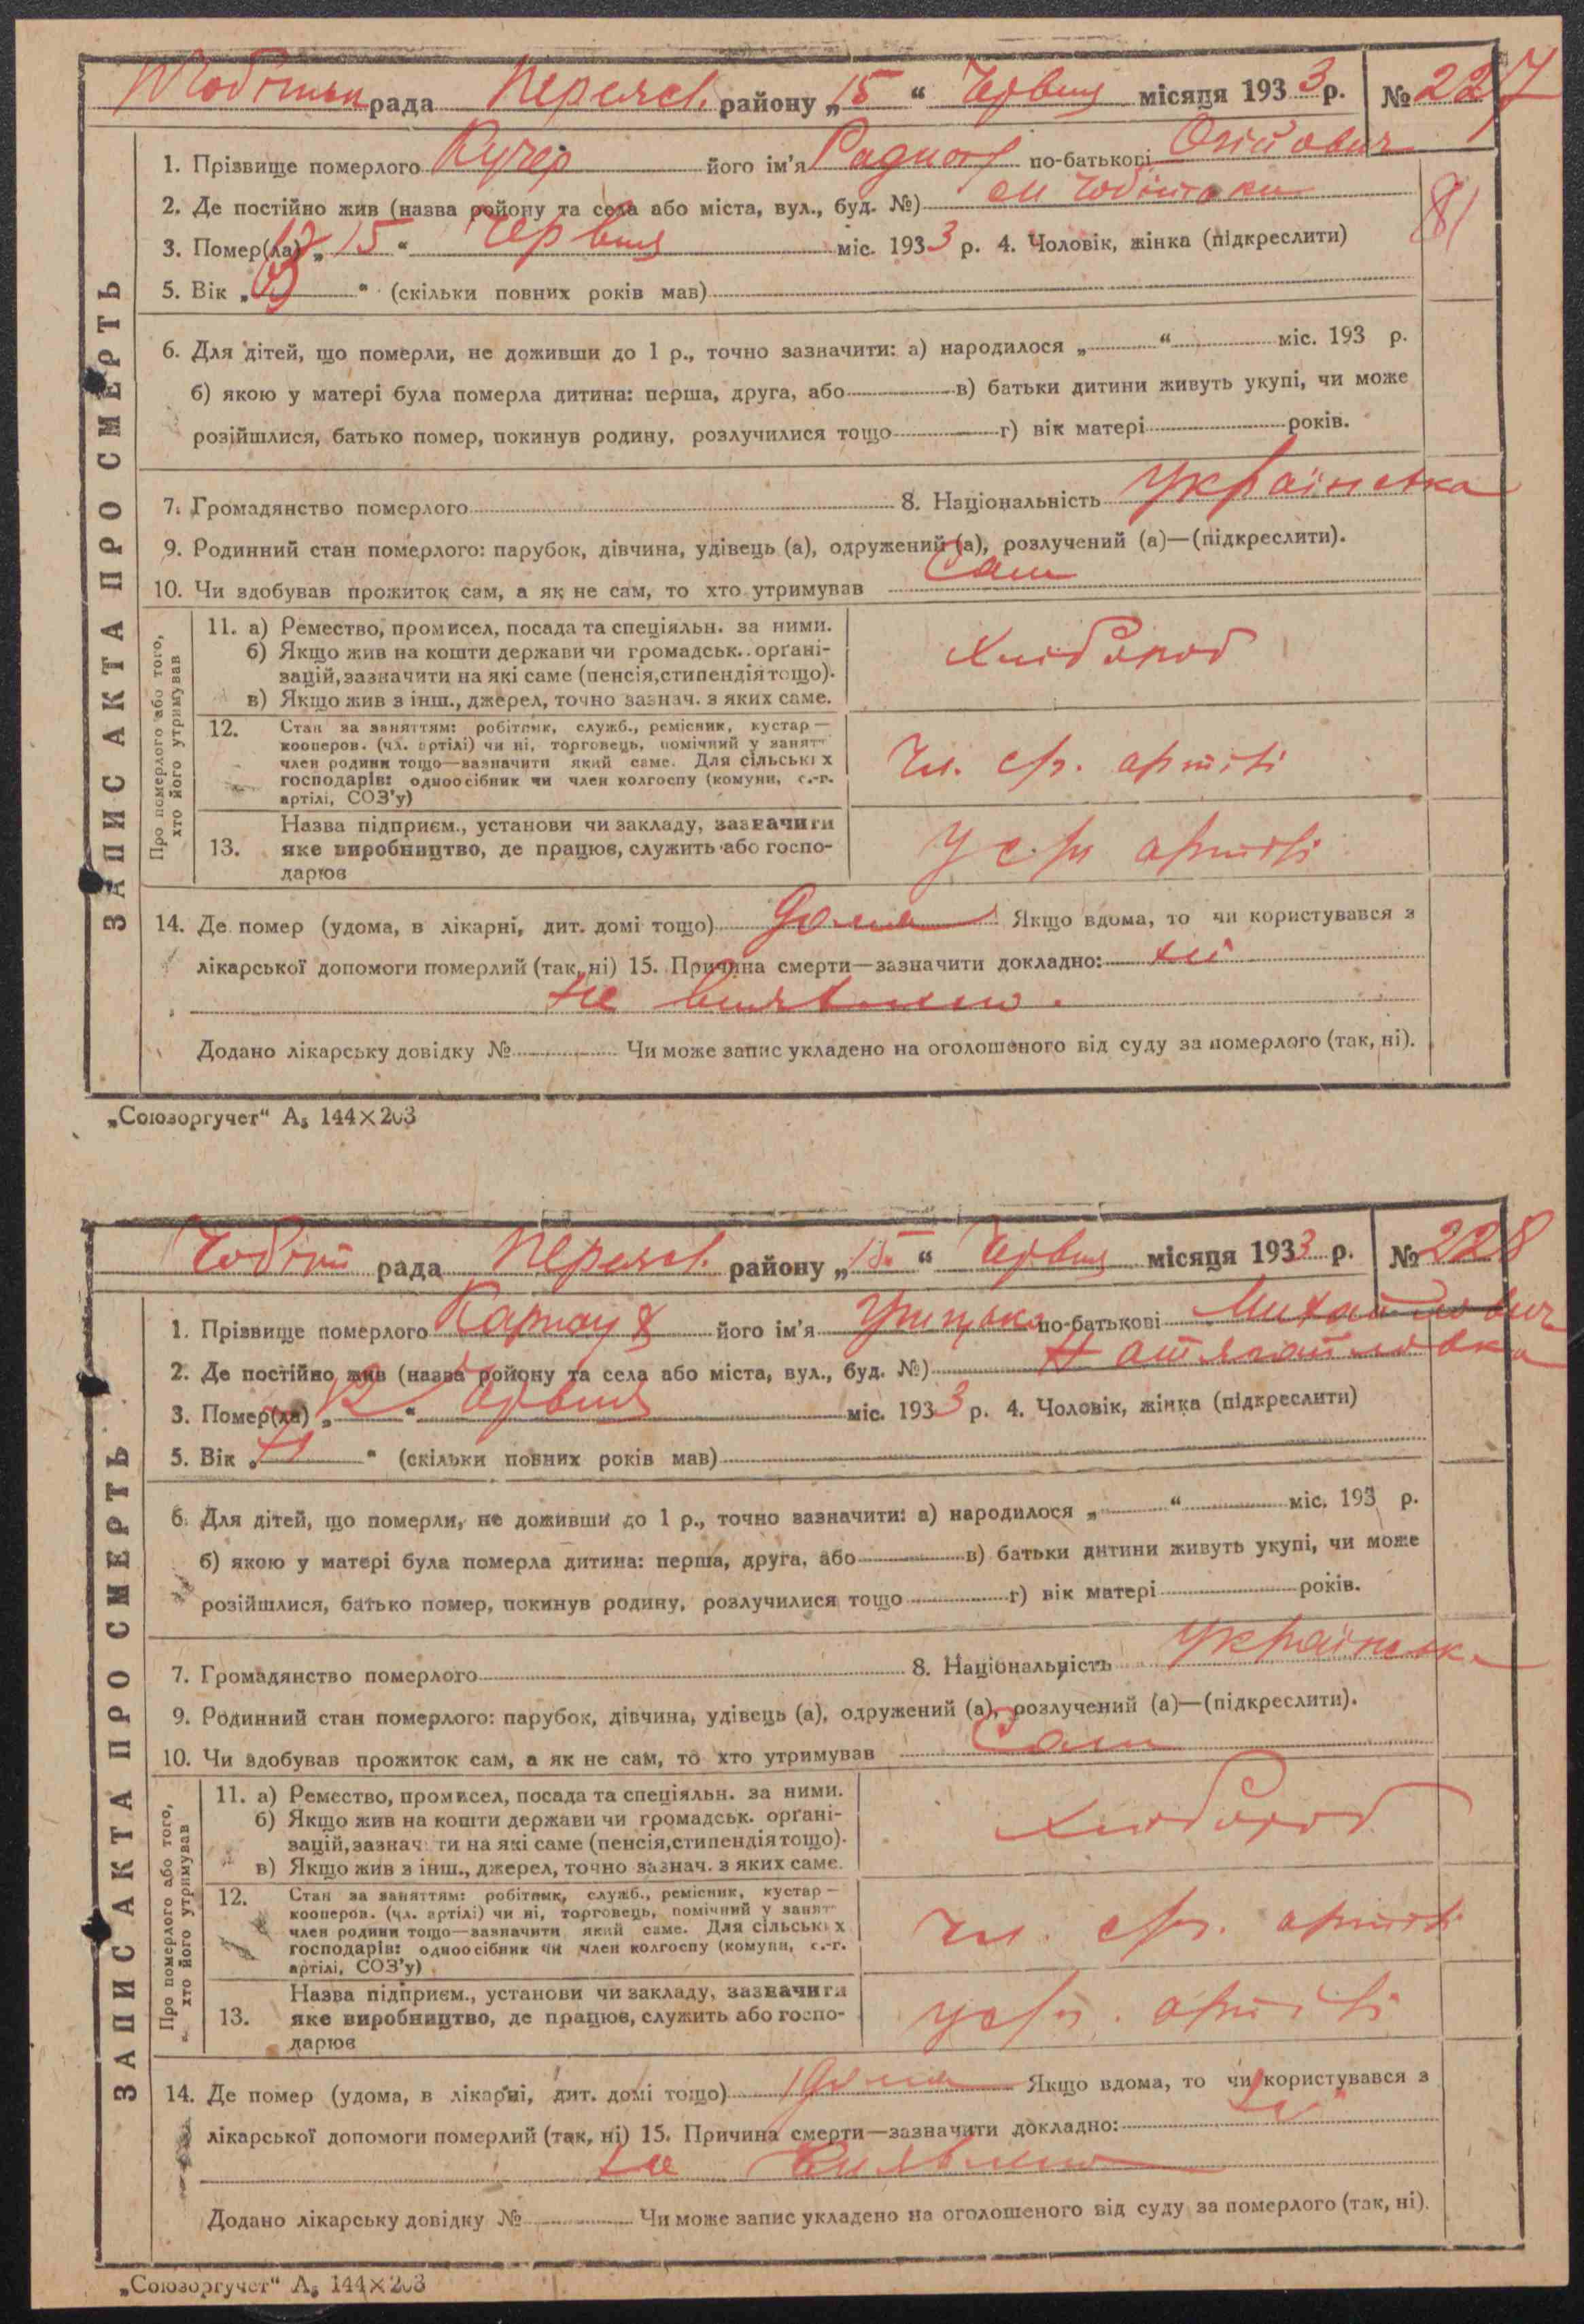 рада Переясл. району „15“ Червня місяця 1933 р. № 227
1. Прізвище померлого Кучер його ім'я по-батькові
2. Де постійно жив (назва ройону та села або міста, вул., буд. №)
3. Помер(ла) „15“ Червня міс. 1933 р. 4. Чоловік, жінка (підкреслити)
81
5. Вік „ “ (скільки повних років мав)
6. Для дітей, що померли, не доживши до 1 р., точно зазначити: а) народилося „ “ міс. 193 р.
б) якою у матері була померла дитина: перша, друга, або в) батьки дитини живуть укупі, чи може
розійшлися, батько помер, покинув родину, розлучилися тощо г) вік матері років.
7. Громадянство померлого 8. Національність Українська
9. Родинний стан померлого: парубок, дівчина, удівець (а), одружений (а), розлучений (а)—(підкреслити).
10. Чи здобував прожиток сам, а як не сам, то хто утримував Сам
ЗАПИС АКТА ПРО СМЕРТЬ
Про померлого або того,
хто його утримував
11. а) Ремество, промисел, посада та спеціяльн. за ними.
б) Якщо жив на кошти держави чи громадськ. орґані-
зацій, зазначити на які саме (пенсія, стипендія тощо).
в) Якщо жив з інш., джерел, точно зазнач. з яких саме.
Хлібороб
12. Стан за заняттям: робітник, служб., ремісник, кустар—
кооперов. (чл. артілі) чи ні, торговець, помічний у занят
член родини тощо—зазначити який саме. Для сільських
господарів: одноосібник чи член колгоспу (комуни, с.-г.
артілі, СОЗ'у)
Чл. с/г. артілі
13. Назва підприєм., установи чи закладу, зазначити
яке виробництво, де працюв, служить або госпо-
дарюв
У с/г артілі
14. Де помер (удома, в лікарні, дит. домі тощо) Дома Якщо вдома, то чи користувався з
лікарської допомоги померлий (так, ні) 15. Причина смерти—зазначити докладно: ні
не виявлено.
Додано лікарську довідку № Чи може запис укладено на оголошеного від суду за померлого (так, ні).
„Союзоргучет“ А₅ 144×203
рада Переясл. району „15“ Червня місяця 1933 р. № 228
1. Прізвище померлого Карнаух його ім'я Грицько по-батькові Михайлович
2. Де постійно жив (назва ройону та села або міста, вул., буд. №)
3. Помер(ла) „12“ Червня міс. 1933 р. 4. Чоловік, жінка (підкреслити)
5. Вік „ “ (скільки повних років мав)
6. Для дітей, що померли, не доживши до 1 р., точно зазначити: а) народилося „ “ міс. 193 р.
б) якою у матері була померла дитина: перша, друга, або в) батьки дитини живуть укупі, чи може
розійшлися, батько помер, покинув родину, розлучилися тощо г) вік матері років.
7. Громадянство померлого 8. Національність Українськ.
9. Родинний стан померлого: парубок, дівчина, удівець (а), одружений (а), розлучений (а)—(підкреслити).
10. Чи здобував прожиток сам, а як не сам, то хто утримував Сам
ЗАПИС АКТА ПРО СМЕРТЬ
Про померлого або того,
хто його утримував
11. а) Ремество, промисел, посада та спеціяльн. за ними.
б) Якщо жив на кошти держави чи громадськ. орґані-
зацій, зазначити на які саме (пенсія, стипендія тощо).
в) Якщо жив з інш., джерел, точно зазнач. з яких саме.
Хлібороб
12. Стан за заняттям: робітник, служб., ремісник, кустар—
кооперов. (чл. артілі) чи ні, торговець, помічний у занят
член родини тощо—зазначити який саме. Для сільських
господарів: одноосібник чи член колгоспу (комуни, с.-г.
артілі, СОЗ'у)
Чл. с/г. артілі
13. Назва підприєм., установи чи закладу, зазначити
яке виробництво, де працюв, служить або госпо-
дарюв
у с/г. артілі
14. Де помер (удома, в лікарні, дит. домі тощо) Дома Якщо вдома, то чи користувався з
лікарської допомоги померлий (так, ні) 15. Причина смерти—зазначити докладно: ні
не виявлено
Додано лікарську довідку № Чи може запис укладено на оголошеного від суду за померлого (так, ні).
„Союзоргучет“ А₅ 144×203